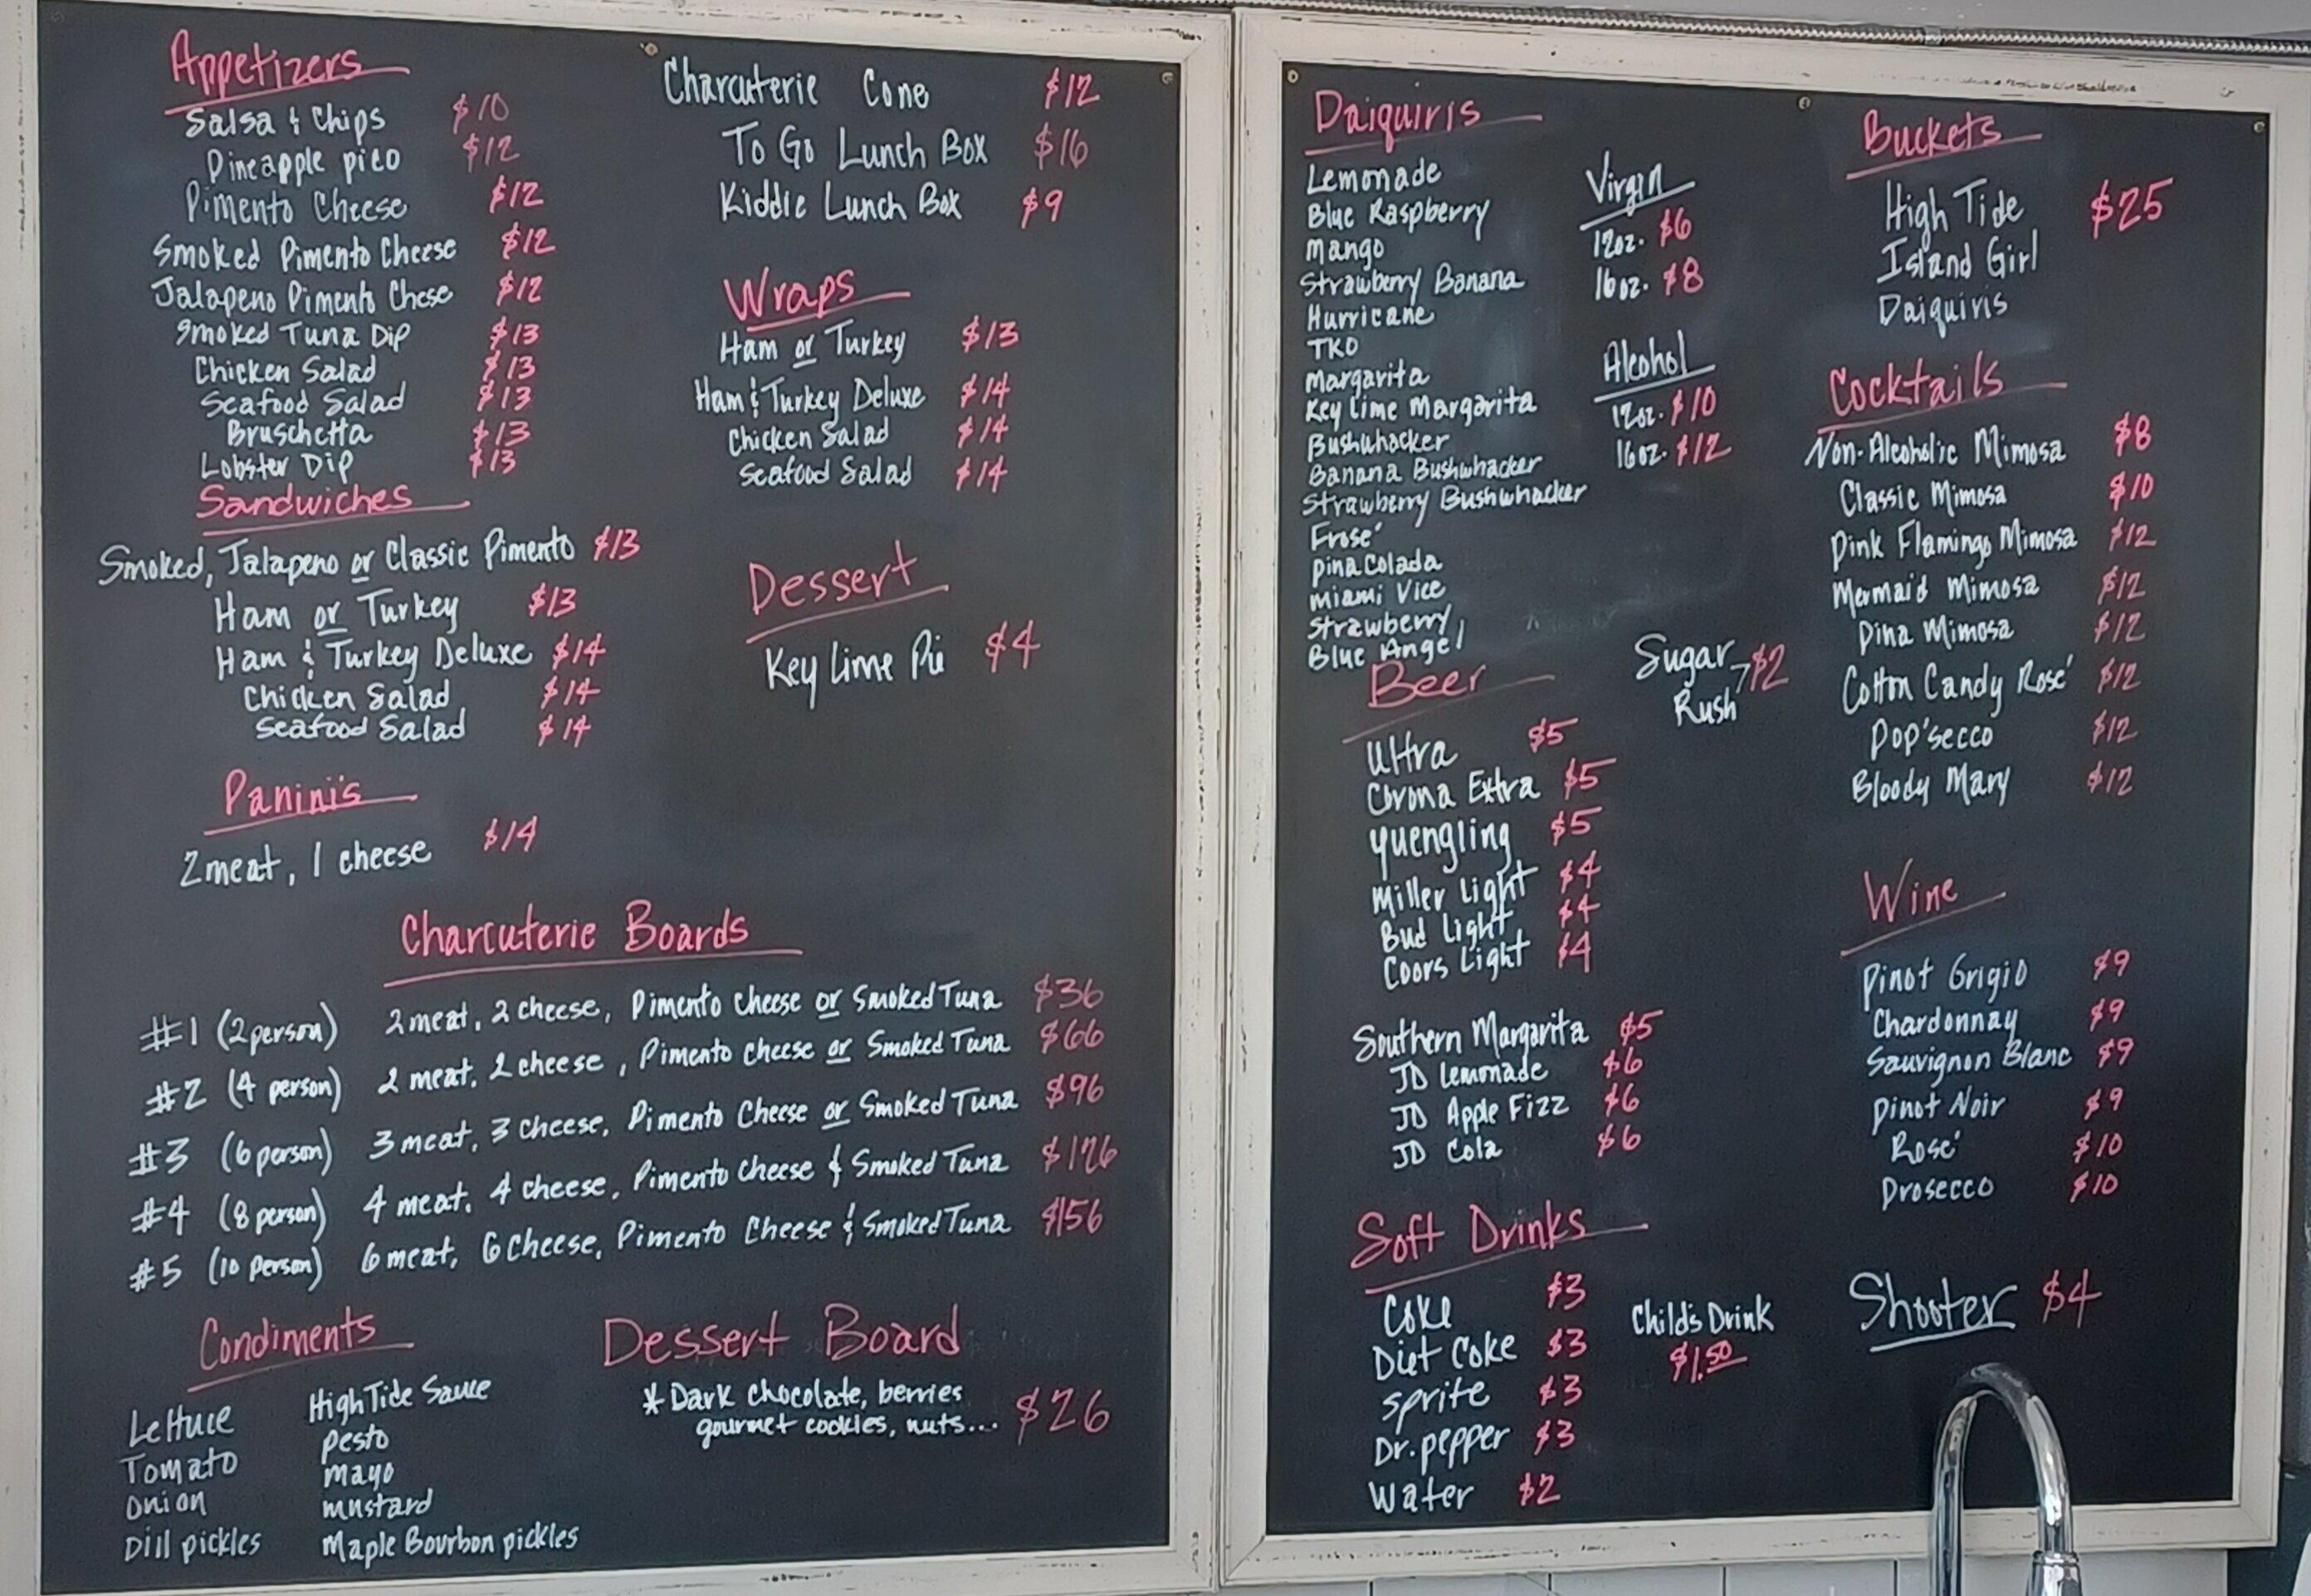 Appetizers
Salsa & Chips $10
Pineapple pico $12
Pimento Cheese $12
Smoked Pimento Cheese $12
Jalapeno Pimento Chese $12
Smoked Tuna Dip $13
Chicken Salad $13
Seafood Salad $13
Bruschetta $13
Lobster Dip $13
Sandwiches
Smoked, Jalapeno or Classic Pimento $13
Ham or Turkey $13
Ham & Turkey Deluxe $14
Chicken Salad $14
Seafood Salad $14
Panini's
2 meat, 1 cheese $14
Charcuterie Cone $12
To Go Lunch Box $16
Kiddie Lunch Box $9
Wraps
Ham or Turkey $13
Ham & Turkey Deluxe $14
Chicken Salad $14
Seafood Salad $14
Dessert
Key Lime Pie $4
Charcuterie Boards
#1 (2 person) 2 meat, 2 cheese, Pimento cheese or Smoked Tuna $36
#2 (4 person) 2 meat, 2 cheese, Pimento cheese or Smoked Tuna $66
#3 (6 person) 3 meat, 3 cheese, Pimento Cheese or Smoked Tuna $96
#4 (8 person) 4 meat, 4 cheese, Pimento Cheese & Smoked Tuna $126
#5 (10 person) 6 meat, 6 Cheese, Pimento Cheese & Smoked Tuna $156
Condiments
Lettuce
Tomato
Onion
Dill pickles
High Tide Sauce
Pesto
Mayo
Mustard
Maple Bourbon pickles
Dessert Board
* Dark chocolate, berries
gourmet cookies, nuts... $26
Daiquiris
Lemonade
Blue Raspberry
Mango
Strawberry Banana
Hurricane
TKO
Margarita
Key Lime Margarita
Bushwhacker
Banana Bushwhacker
Strawberry Bushwhacker
Frose'
Pina Colada
Miami Vice
Strawberry
Blue Angel
Virgin
12oz. $6
16oz. $8
Alcohol
12oz. $10
16oz. $12
Sugar
Rush $2
Beer
Ultra $5
Corona Extra $5
Yuengling $5
Miller Light $4
Bud Light $4
Coors Light $4
Southern Margarita $5
JD Lemonade $6
JD Apple Fizz $6
JD Cola $6
Soft Drinks
Coke $3
Diet Coke $3
Sprite $3
Dr. pepper $3
Water $2
Child's Drink
$1.50
Buckets
High Tide $25
Island Girl
Daiquiris
Cocktails
Non-Alcoholic Mimosa $8
Classic Mimosa $10
Pink Flamingo Mimosa $12
Mermaid Mimosa $12
Pina Mimosa $12
Cotton Candy Rosé $12
Pop'secco $12
Bloody Mary $12
Wine
Pinot Grigio $9
Chardonnay $9
Sauvignon Blanc $9
Pinot Noir $9
Rosé $10
Prosecco $10
Shooter $4